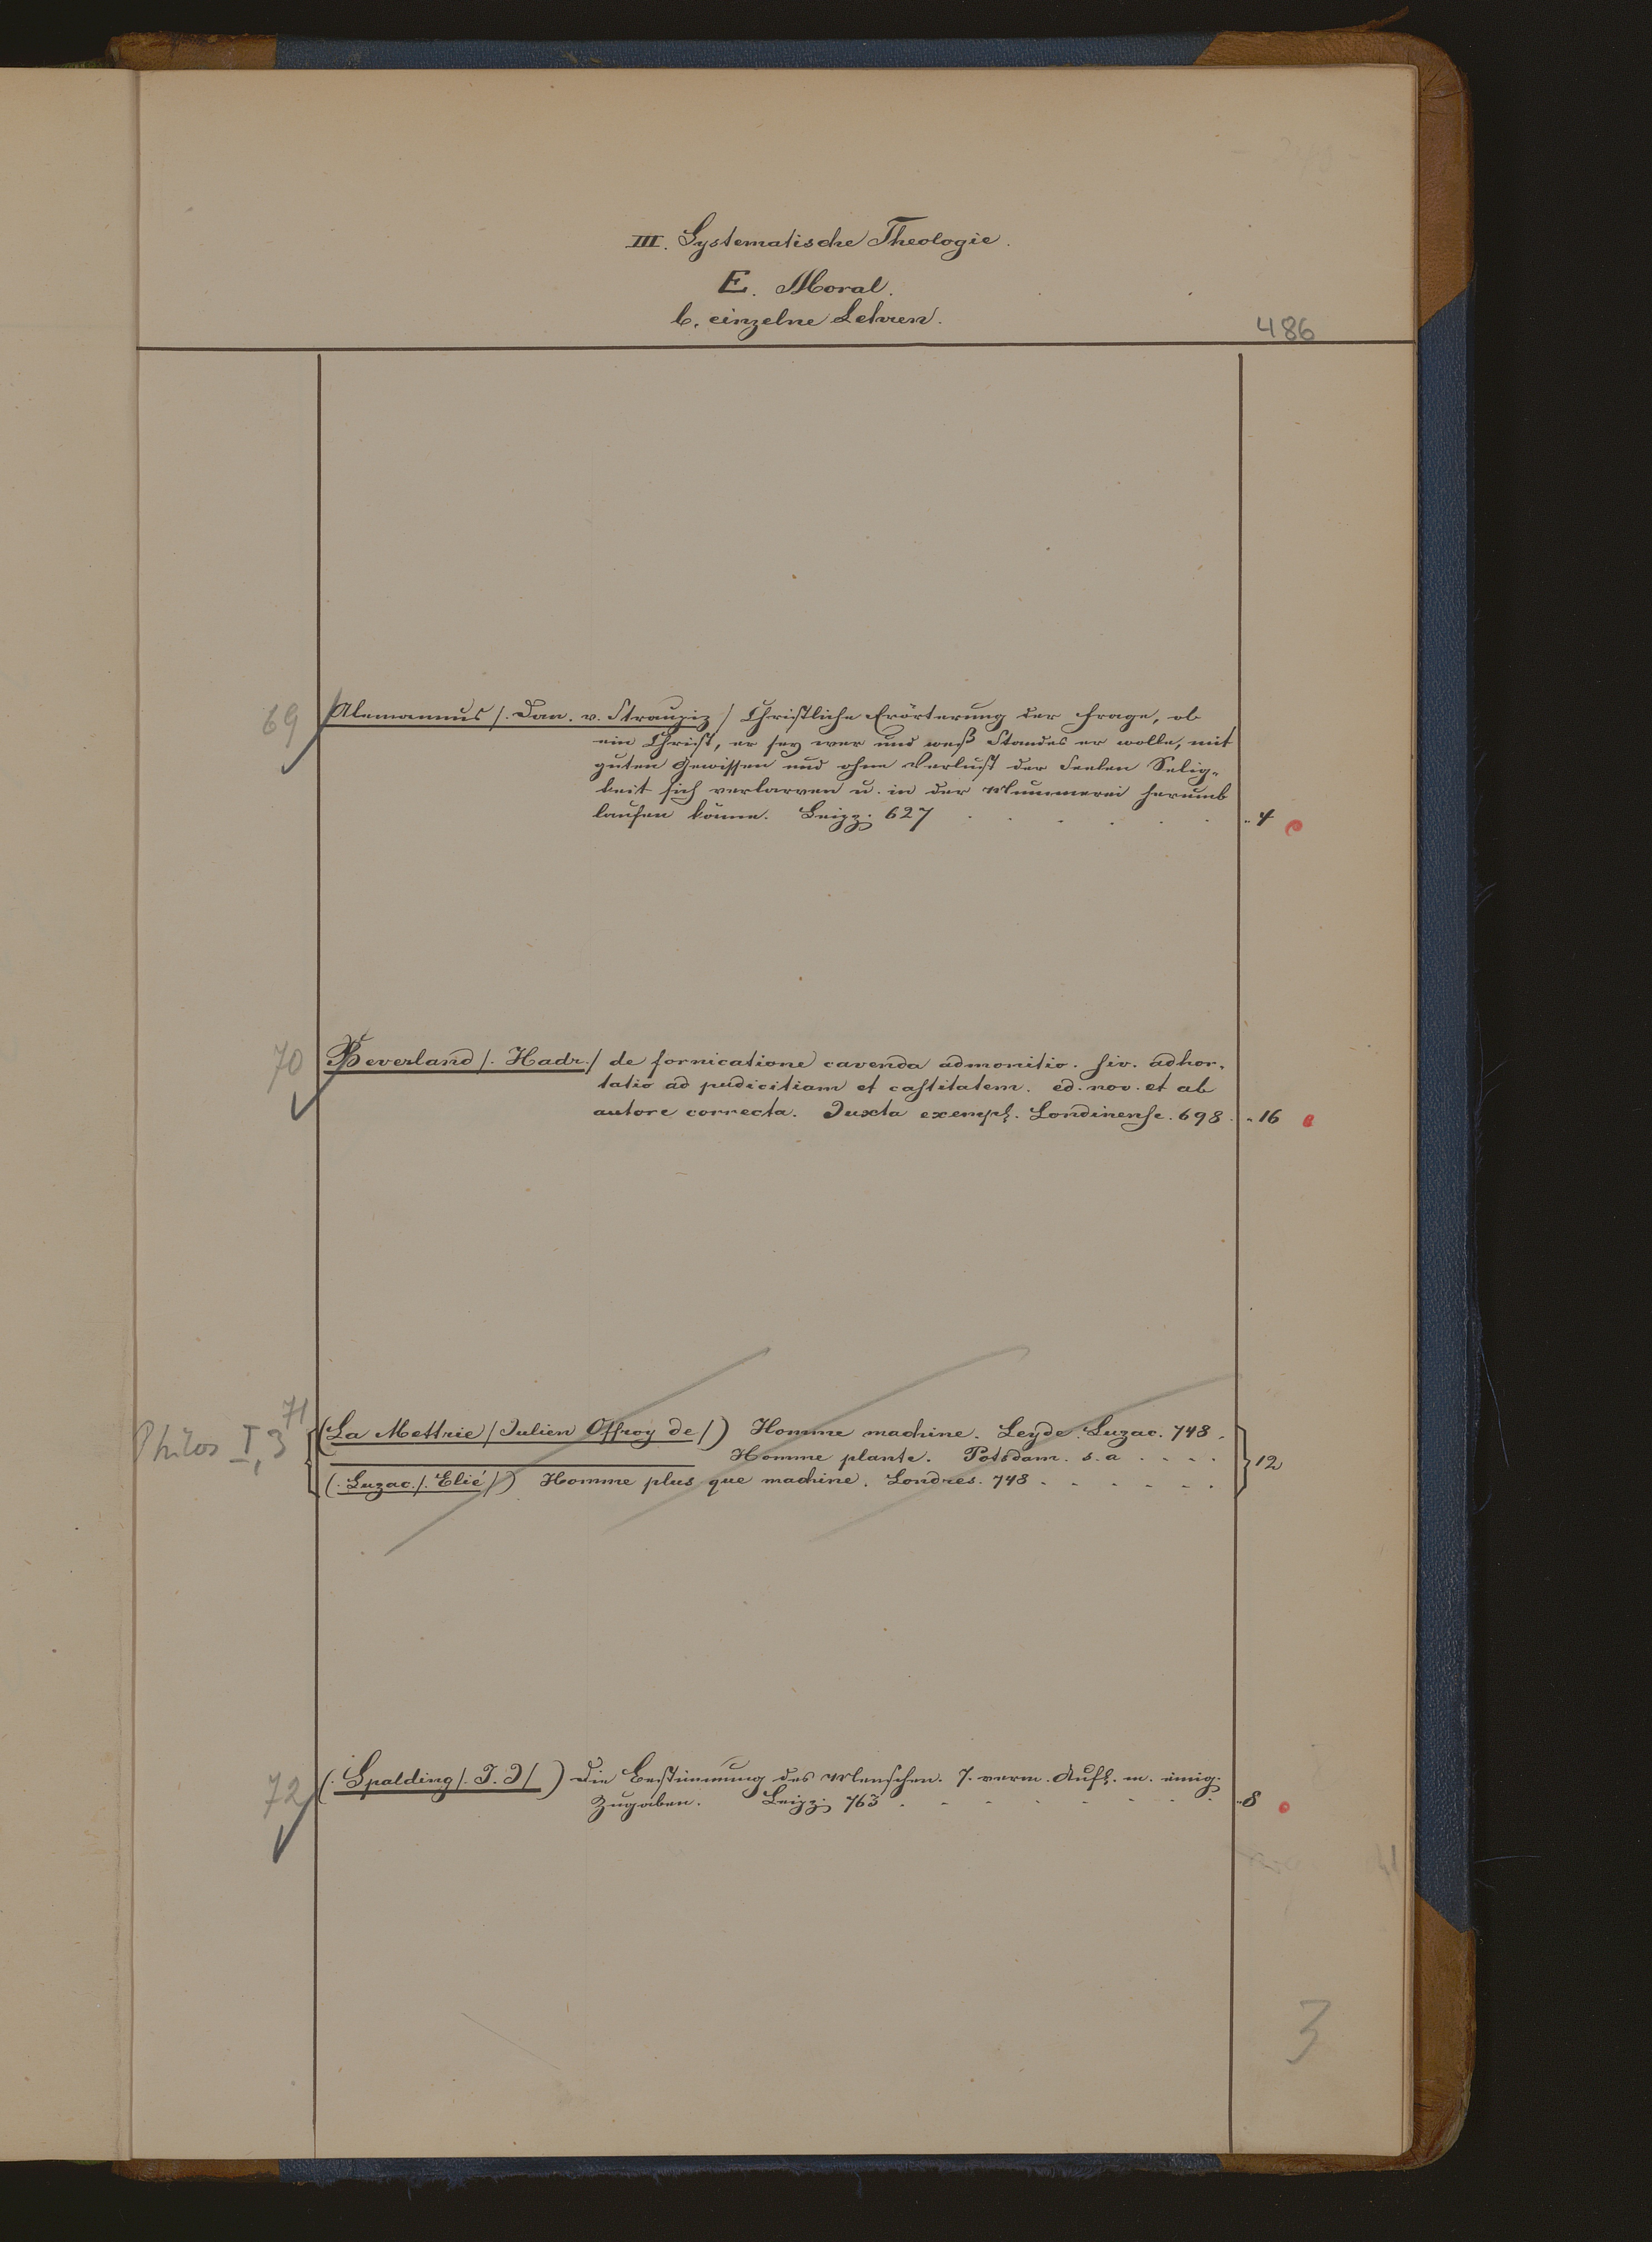 III. Systematische Theologie.
E. Moral.
b. einzelne Lehren.
486
69 Alemannus /. Dan. v. Straupiz / Christliche Erörterung der Frage, ob
ein Christ, er sey wer und weß Standes er wolle, mit
guten Gewissen und ohne Verlust der Seelen Selig-
keit sich verlarven u. in der Mummerei herumb
laufen könne. Leipz. 627 . . . . . . .. 4
70 Beverland /. Hadr. / de fornicatione cavenda admonitio. siv. adhor-
tatio ad pudicitiam et castitatem. ed. nov. et ab
autore correcta. Juxta exempl. Londinense. 698. .. 16
71
Philos I, 3 (La Mettrie / Julien Offroy de /) Homme machine. Leyde. Luzac. 748.
Homme plante. Potsdam. s. a . . . . 12
(. Luzac. /. Elié /) Homme plus que machine. Londres. 748 . . . . . .
72 (. Spalding /. J. J / ) Die Bestimmung des Menschen. 7. verm. Aufl. m. einig.
Zugaben. Leipz. 763 . . . . . . . .. 8
3